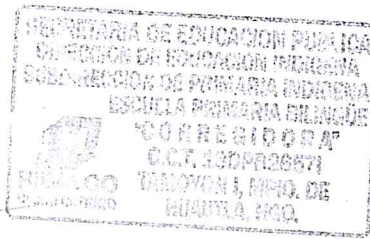 SECRETARIA DE EDUCACION PUBLICA
DIRECCION DE EDUCACION INDIGENA
SUBDIRECCION DE PRIMARIA INDIGENA
ESCUELA PRIMARIA BILINGÜE
"CORREGIDORA"
C.C.T.
HIDALGO TAMOYON I, MPIO. DE
HUAUTLA, HGO.